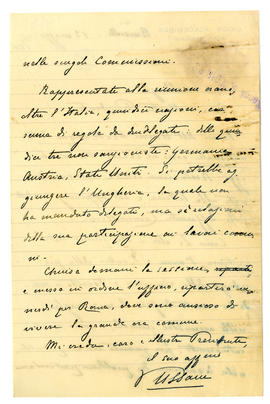 nelle singole Commissioni.
Rappresentate alla riunione erano,
oltre l'Italia, quindici nazioni, cia
scuna di regola da due delegati: delle quin
dici tre non sanzioniste: Germania
Austria, Stati Uniti. Si potrebbe ag
giungere l'Ungheria, la quale non
ha mandato delegati, ma relazioni
della sua partecipazione ai lavori comu
ni.
Chiusa domani la sessione,
e messo in ordine l'ufficio, ripartirò
per Roma, dove sono ansioso di
vivere la grande ora comune.
Mi creda, caro e illustre Presidente,
il suo aff.mo
Ussani